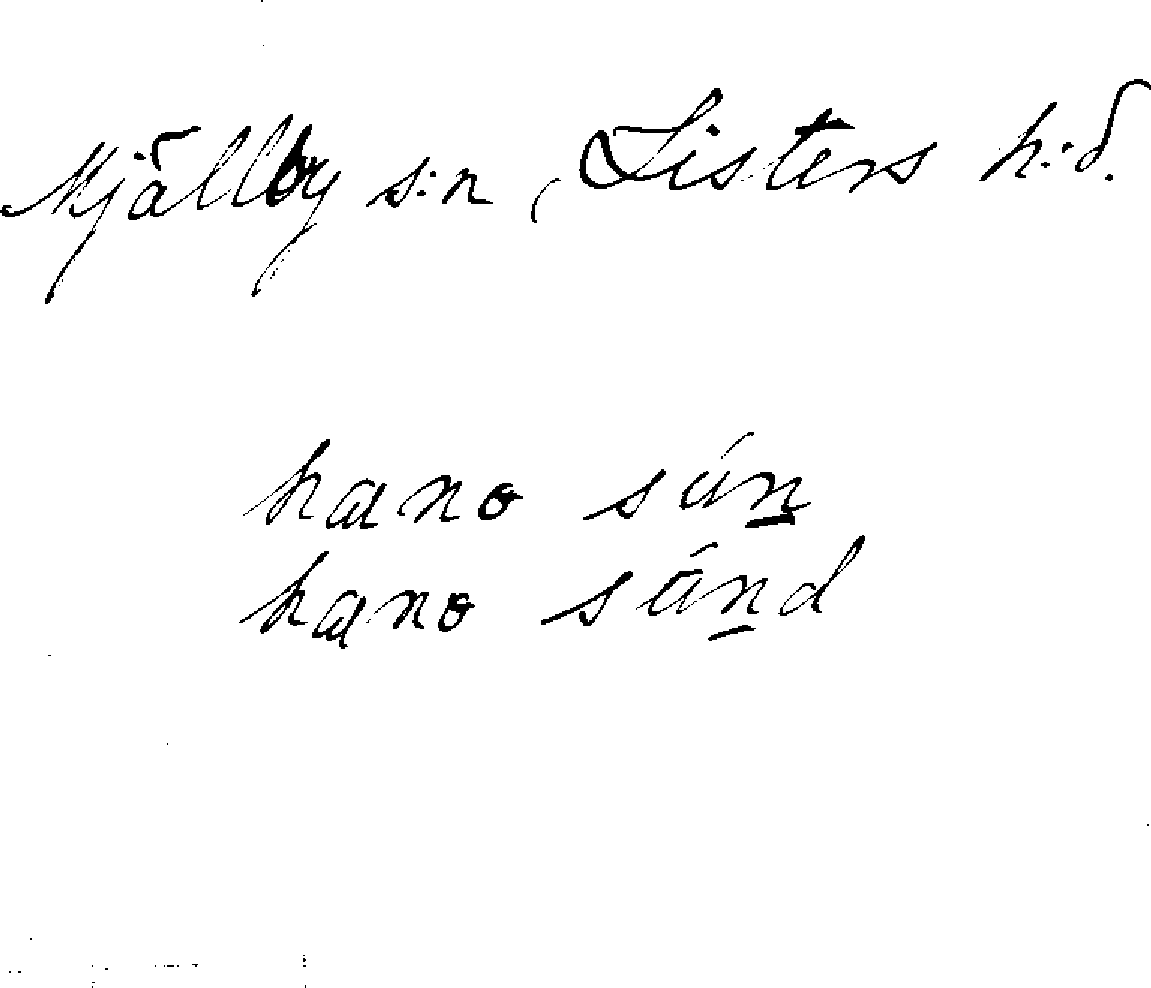 Mjällby s:n, Listers h:d.
hano sún̲
hano sún̲d